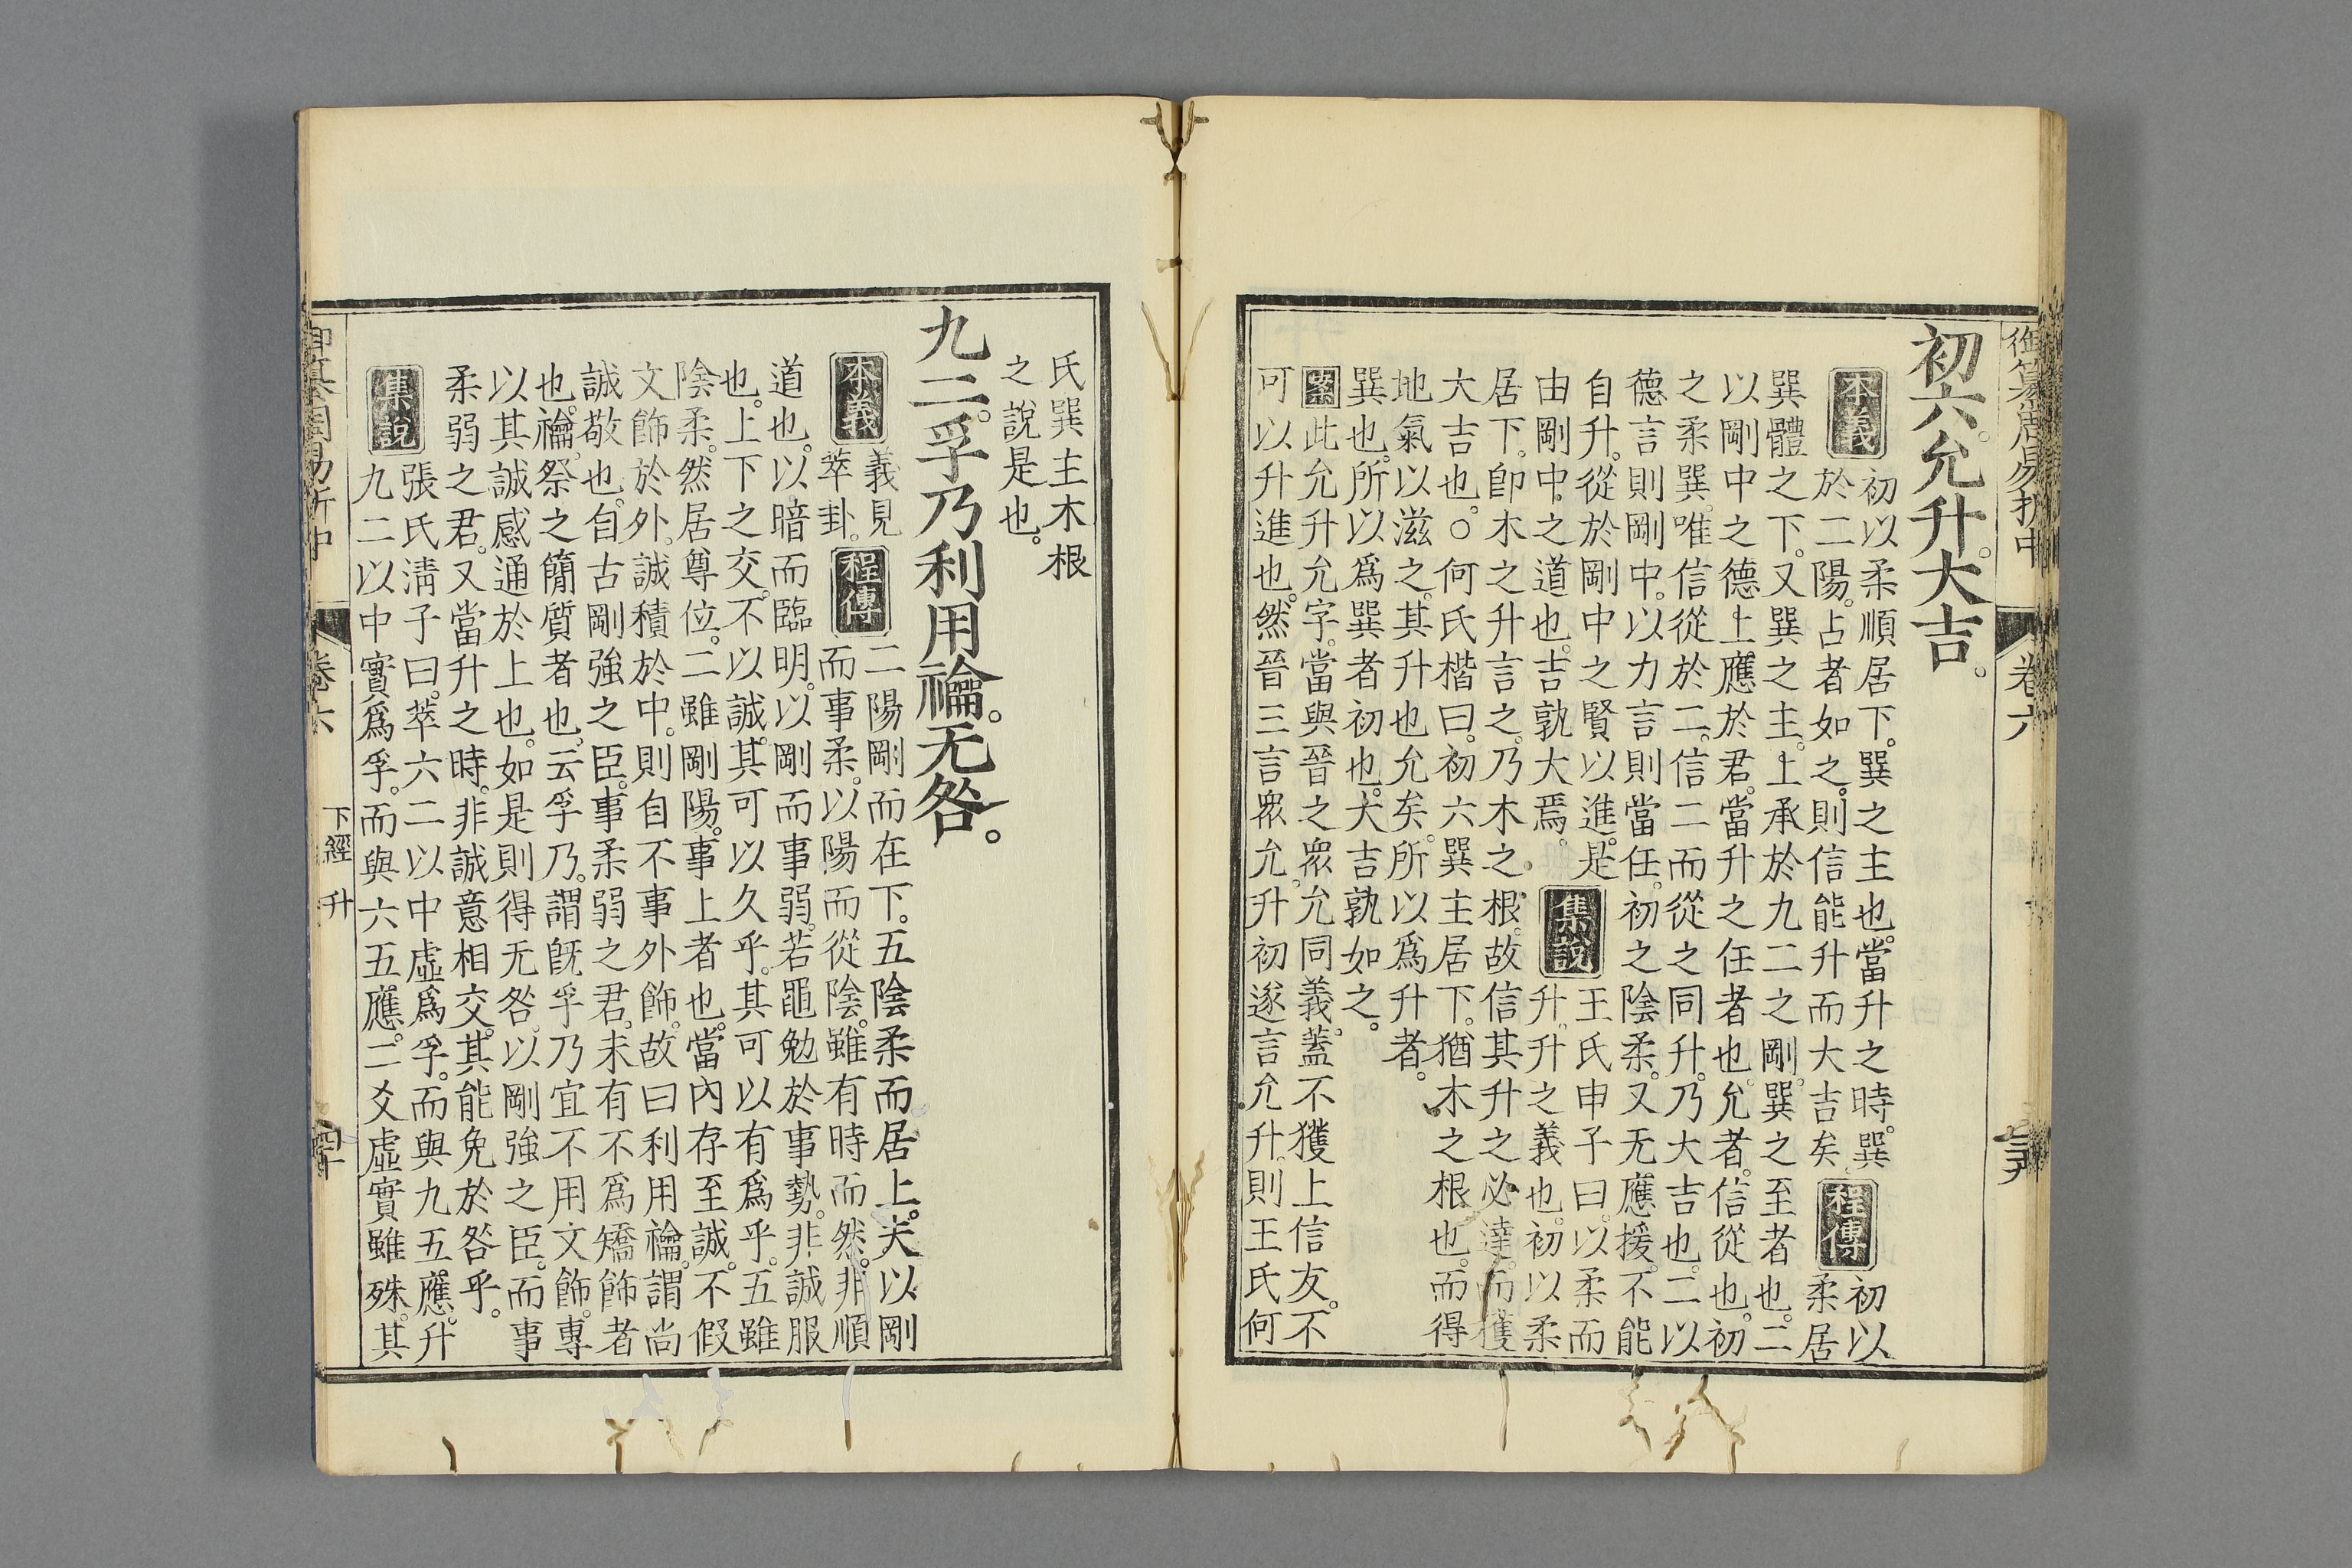 御纂周易折中
卷六
初六。允升。大吉。
本義
初以柔順居下。巽之主也。當升之時。巽
於二陽。占者如之。則信能升而大吉矣。
程傳
初以
柔居
巽體之下。又巽之主。上承於九二之剛。巽之至者也。二
以剛中之德。上應於君。當升之任者也。允者。信從也。初
之柔巽。唯信從於二。信二而從之同升。乃大吉也。二以
德言則剛中。以力言則當任。初之陰柔。又无應援。不能
自升。從於剛中之賢以進。是
由剛中之道也。吉孰大焉。
集說
王氏申子曰。以柔而
升。升之義也。初以柔
居下。卽木之升言之。乃木之根。故信其升之必達。而獲
大吉也。○何氏楷曰。初六巽主居下。猶木之根也。而得
地氣以滋之。其升也允矣。所以爲升者。
巽也。所以爲巽者初也。大吉孰如之。
案
此允升允字。當與晉之眾允同義。蓋不獲上信友。不
可以升進也。然晉三言眾允。升初遂言允升。則王氏何
氏巽主木根
之說是也。
九二。孚乃利用禴。无咎。
本義
義見
萃卦。
程傳
二陽剛而在下。五陰柔而居上。夫以剛
而事柔。以陽而從陰。雖有時而然。非順
道也。以暗而臨明。以剛而事弱。若黽勉於事勢。非誠服
也。上下之交。不以誠。其可以久乎。其可以有爲乎。五雖
陰柔。然居尊位。二雖剛陽。事上者也。當內存至誠。不假
文飾於外。誠積於中。則自不事外飾。故曰利用禴。謂尚
誠敬也。自古剛強之臣。事柔弱之君。未有不爲矯飾者
也。禴。祭之簡質者也。云孚乃。謂旣孚乃宜不用文飾。專
以其誠感通於上也。如是則得无咎。以剛強之臣。而事
柔弱之君。又當升之時。非誠意相交。其能免於咎乎。
集說
張氏清子曰。萃六二以中虛爲孚。而與九五應。升
九二以中實爲孚。而與六五應。二爻虛實雖殊。其
御纂周易折中
卷六
下經 升
四十